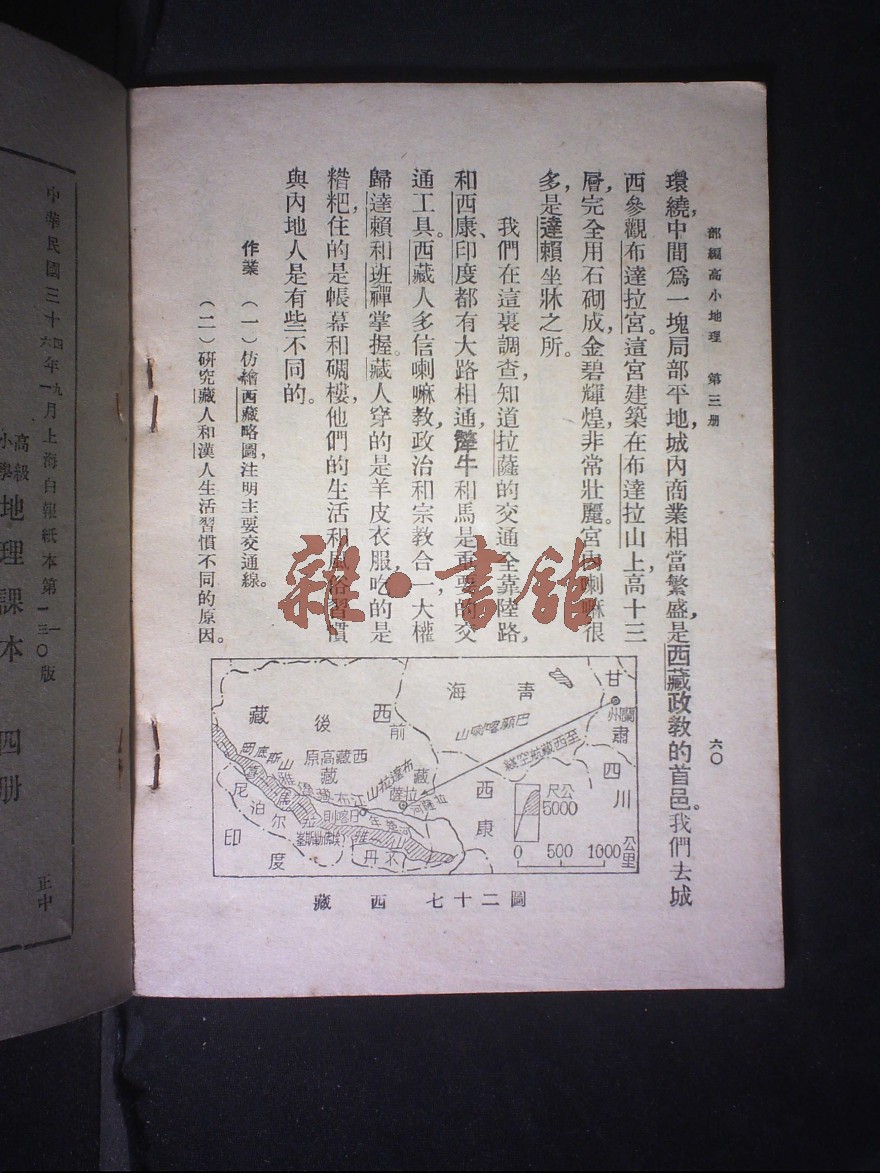 部編高小地理　第三册
六〇
環繞，中間爲一塊局部平地，城內商業相當繁盛，是西藏政教的首邑。我們去城
西參觀布達拉宮。這宮建築在布達拉山上，高十三
層，完全用石砌成，金碧輝煌，非常壯麗。宮內喇嘛很
多，是達賴坐牀之所。
我們在這裏調查，知道拉薩的交通全靠陸路，
和西康、印度都有大路相通，犛牛和馬是重要的交
通工具。西藏人多信喇嘛教，政治和宗教合一，大權
歸達賴和班禪掌握。藏人穿的是羊皮衣服，吃的是
糌粑，住的是帳幕和碉樓，他們的生活和風俗習慣
與內地人是有些不同的。
作業　（一）仿繪西藏略圖，注明主要交通線。
（二）研究藏人和漢人生活習慣不同的原因。
甘肅
蘭州
青海
四川
西康
西藏
前藏
後藏
西藏高原
巴顏喀喇山
至西藏航空線
布達拉山
拉薩
拉薩河
岡底斯山
日喀則
尼泊爾
不丹
印度
公尺
5000
0　500　1000公里
圖二十七　西藏
雜·書館
中華民國三十四年九月上海白報紙本第一版
六　一　一三〇
高級
小學
地理課本　四册
正中